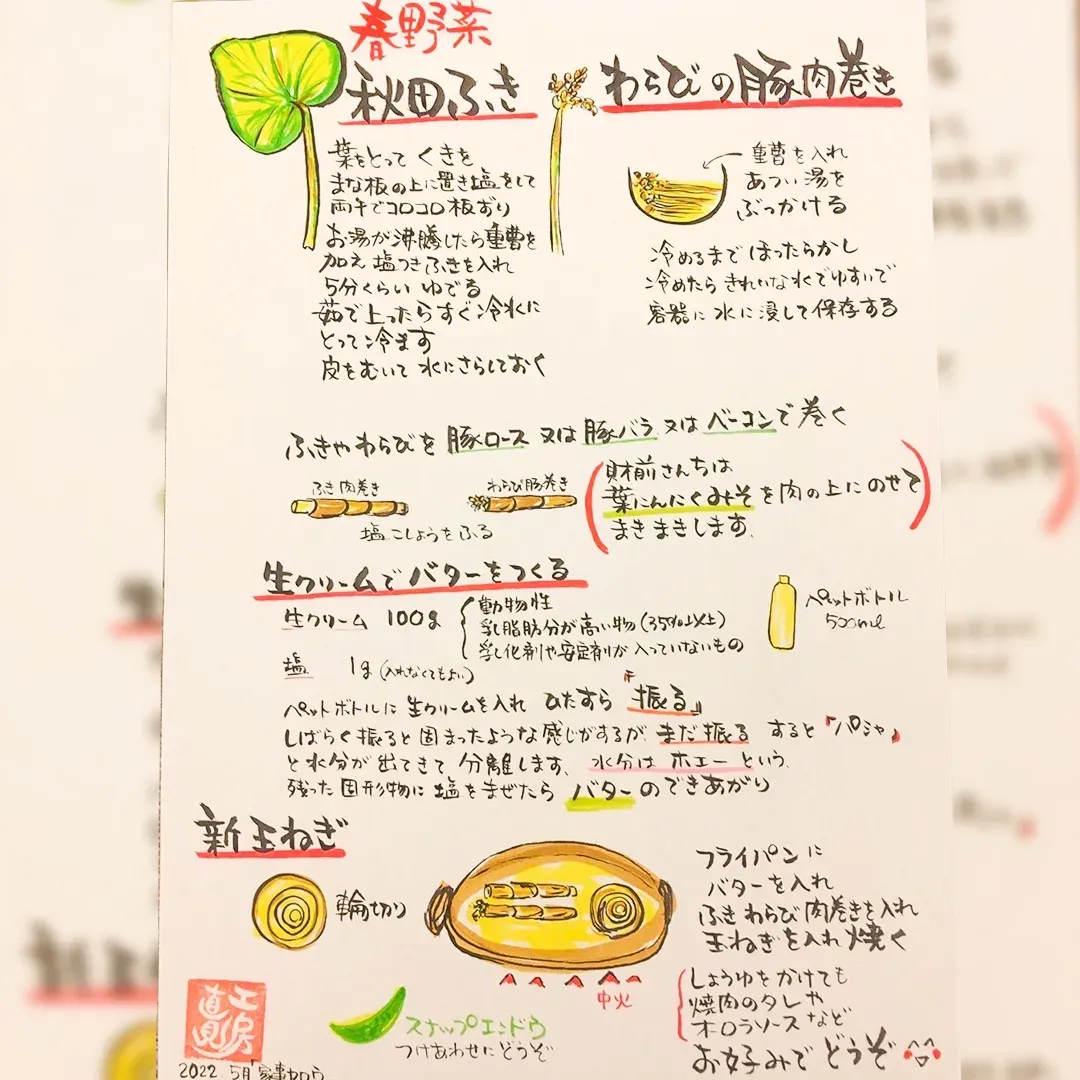 春野菜
秋田ふき
葉をとって くきを
まな板の上に置き塩をして
両手でコロコロ板ずり
お湯が沸騰したら重曹を
加え 塩つきふきを入れ
5分くらい ゆでる
茹で上ったらすぐ冷水に
とって冷ます
皮をむいて 水にさらしておく
わらびの豚肉巻き
重曹を入れ
あつい湯を
ぶっかける
冷めるまで ほったらかし
冷めたら きれいな水でゆすいで
容器に 水に浸して保存する
ふきやわらびを 豚ロース 又は 豚バラ 又は ベーコンで 巻く
ふき 肉巻き
わらび豚巻き
塩こしょうをふる
財前さんちは
葉にんにくみそを肉の上に のせて
まきまきします。
生クリームで バターをつくる
生クリーム 100g
動物性
乳脂肪分が高い物(35%以上)
乳化剤や安定剤が入っていないもの
塩 1g (入れなくてもよい)
ペットボトル
500ml
ペットボトルに 生クリームを入れ ひたすら 『振る』
しばらく振ると固まったような感じがするが まだ振る すると 「パシャ」
と水分が出てきて 分離します、水分は ホエー という。
残った固形物に 塩をまぜたら バターのできあがり
新玉ねぎ
輪切り
中火
フライパンに
バターを入れ
ふき わらび 肉巻きを入れ
玉ねぎを入れ 焼く
しょうゆをかけても
焼肉のタレや
オロラソースなど
お好みで どうぞ
スナップエンドウ
つけあわせにどうぞ
工房
直
2022 5月